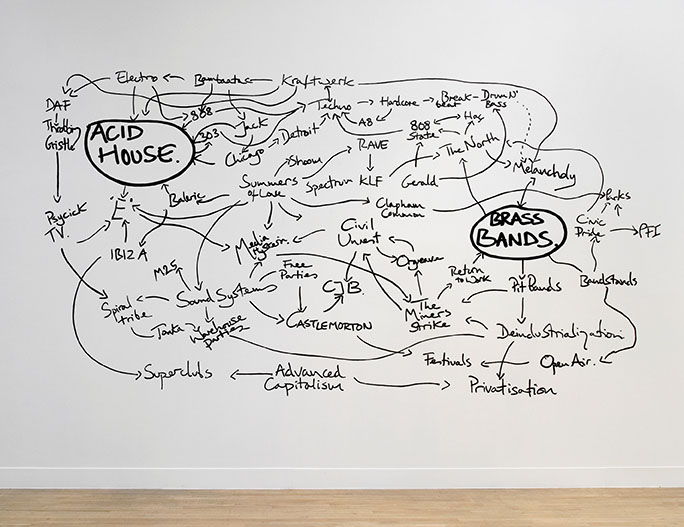 Electro
Bambaata
Kraftwerk
DAF
Throbbing
Gristle
ACID
HOUSE.
808
303
Jack
Chicago
Detroit
Techno
Hardcore
Break
beat
Drum N'
Bass
A8
808
State
Has
The North
RAVE
Shoom
Summers
of Love
Spectrum
KLF
Gerald
Melancholy
Clapham
Common
Parks
Civic
Pride
PFI
BRASS
BANDS.
Psychick
TV.
'E'.
Balaric
IBIZA
Media
Hysteria.
Civil
Unrest
Orgreave
Free
Parties
CJB.
Return
to Work
Pit Bands
Bandstands
M25
Sound Systems
Spiral
tribe
Tonka
Warehouse
parties
CASTLEMORTON
The
Miners
Strike
Deindustrialization
Festivals
Open Air.
Superclubs
Advanced
Capitalism
Privatisation